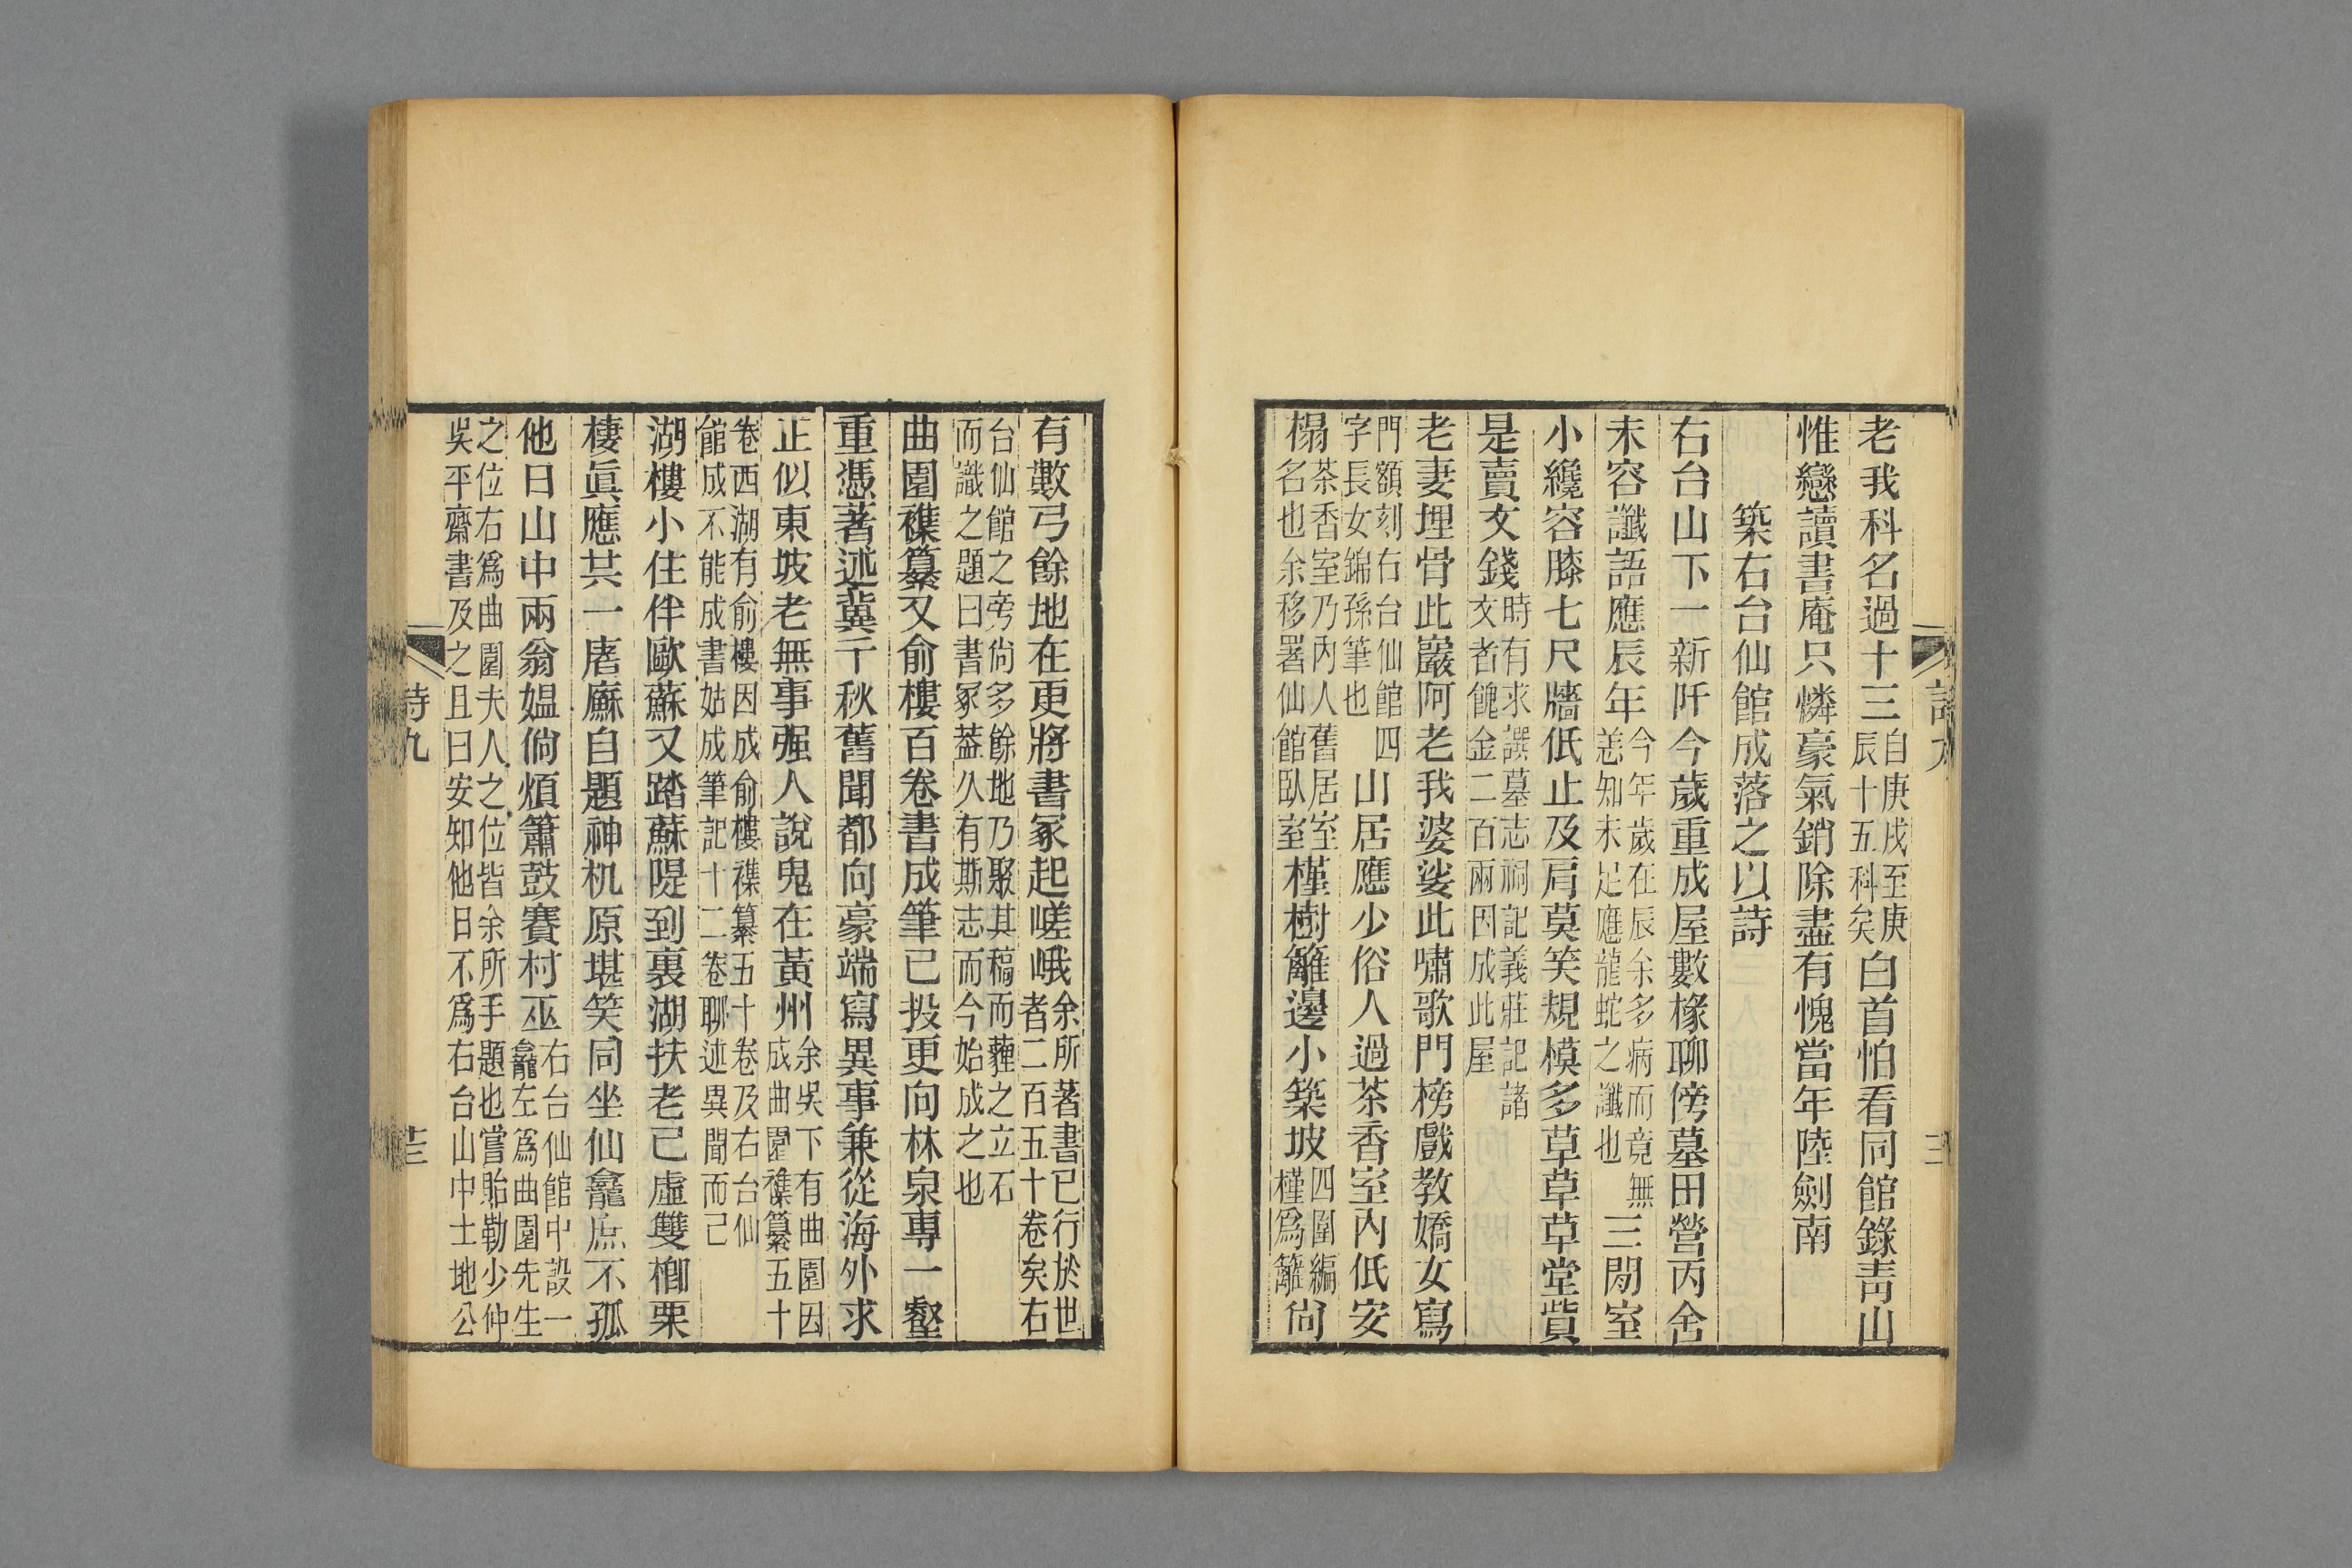 老我科名過十三自庚戌至庚辰十五科矣白首怕看同館錄靑山
惟戀讀書庵只憐豪氣銷除盡有愧當年陸劍南
築右台仙館成落之以詩
右台山下一新阡今歲重成屋數椽聊傍墓田營丙舍
未容讖語應辰年今年歲在辰余多病而竟無恙知未足應龍蛇之讖也三閒室
小纔容膝七尺牆低止及肩莫笑規模多草草草堂貲
是賣文錢時有求譔墓志祠記義莊記諸文者餽金二百兩因成此屋
老妻埋骨此巖阿老我婆娑此嘯歌門榜戲教嬌女寫
門額刻右台仙館四字長女錦孫筆也山居應少俗人過茶香室內低安
榻茶香室乃內人舊居室名也余移署仙館臥室槿樹籬邊小築坡四圍編槿爲籬尙
有數弓餘地在更將書冢起嵯峨余所著書已行於世者二百五十卷矣右
台仙館之旁尙多餘地乃聚其稿而薶之立石而識之題曰書冢葢久有斯志而今始成之也
曲園襍纂又俞樓百卷書成筆已投更向林泉專一壑
重憑著述冀千秋舊聞都向豪端寫異事兼從海外求
正似東坡老無事强人說鬼在黃州余吳下有曲園因成曲園襍纂五十
卷西湖有俞樓因成俞樓襍纂五十卷及右台仙館成不能成書姑成筆記十二卷聊述異聞而已
湖樓小住伴歐蘇又踏蘇隄到裏湖扶老已虛雙櫛栗
棲眞應共一屠廯自題神机原堪笑同坐仙龕庶不孤
他日山中兩翁媼倘煩簫鼓賽村巫右台仙館中設一龕左爲曲園先生
之位右爲曲園夫人之位皆余所手題也嘗貽勒少仲吳平齋書及之且曰安知他日不爲右台山中土地公
詩九